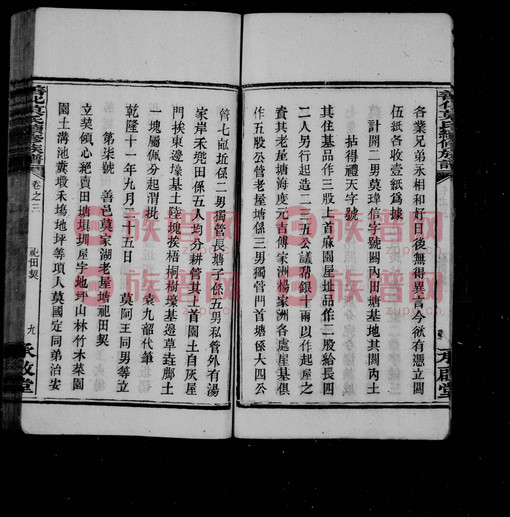 各業兄弟永相和好日後無得異言今欲有憑立鬮
伍紙各收壹紙爲據
計開二男莫瑋信字號鬮丙田塘基地其鬮內土
拈得禮天字號
其住基品作三股上首麻園屋址品作二股給長四
二人另行起造二人五公議帮銀十兩以作起屋之
資其老屋塘海度元吉傅家洲楊家洲各處屋基俱
作五股公管老屋塘係三男獨管門首塘係大四公
管七
址係二男獨管長塘子係五男私管外有湯
家岸禾兜田係五人均分耕管其門首園土自灰屋
門挨東邊
基土陸塊挨梧桐樹
基邊草
廊土
一塊屬佩分起渭批
袁九韶代筆
乾隆十一年九月二十五日
莫阿王同男等立
第柒號
善邑莫家湖老屋塘祀田契
立契傾心絶賣田塘垻圳屋宇地坪山林竹木菜園
園土溝池糞
禾場地坪等項人莫國定同弟治安
善化莫氏續修族譜
卷之三
祀田契
九
承啟堂
族譜网